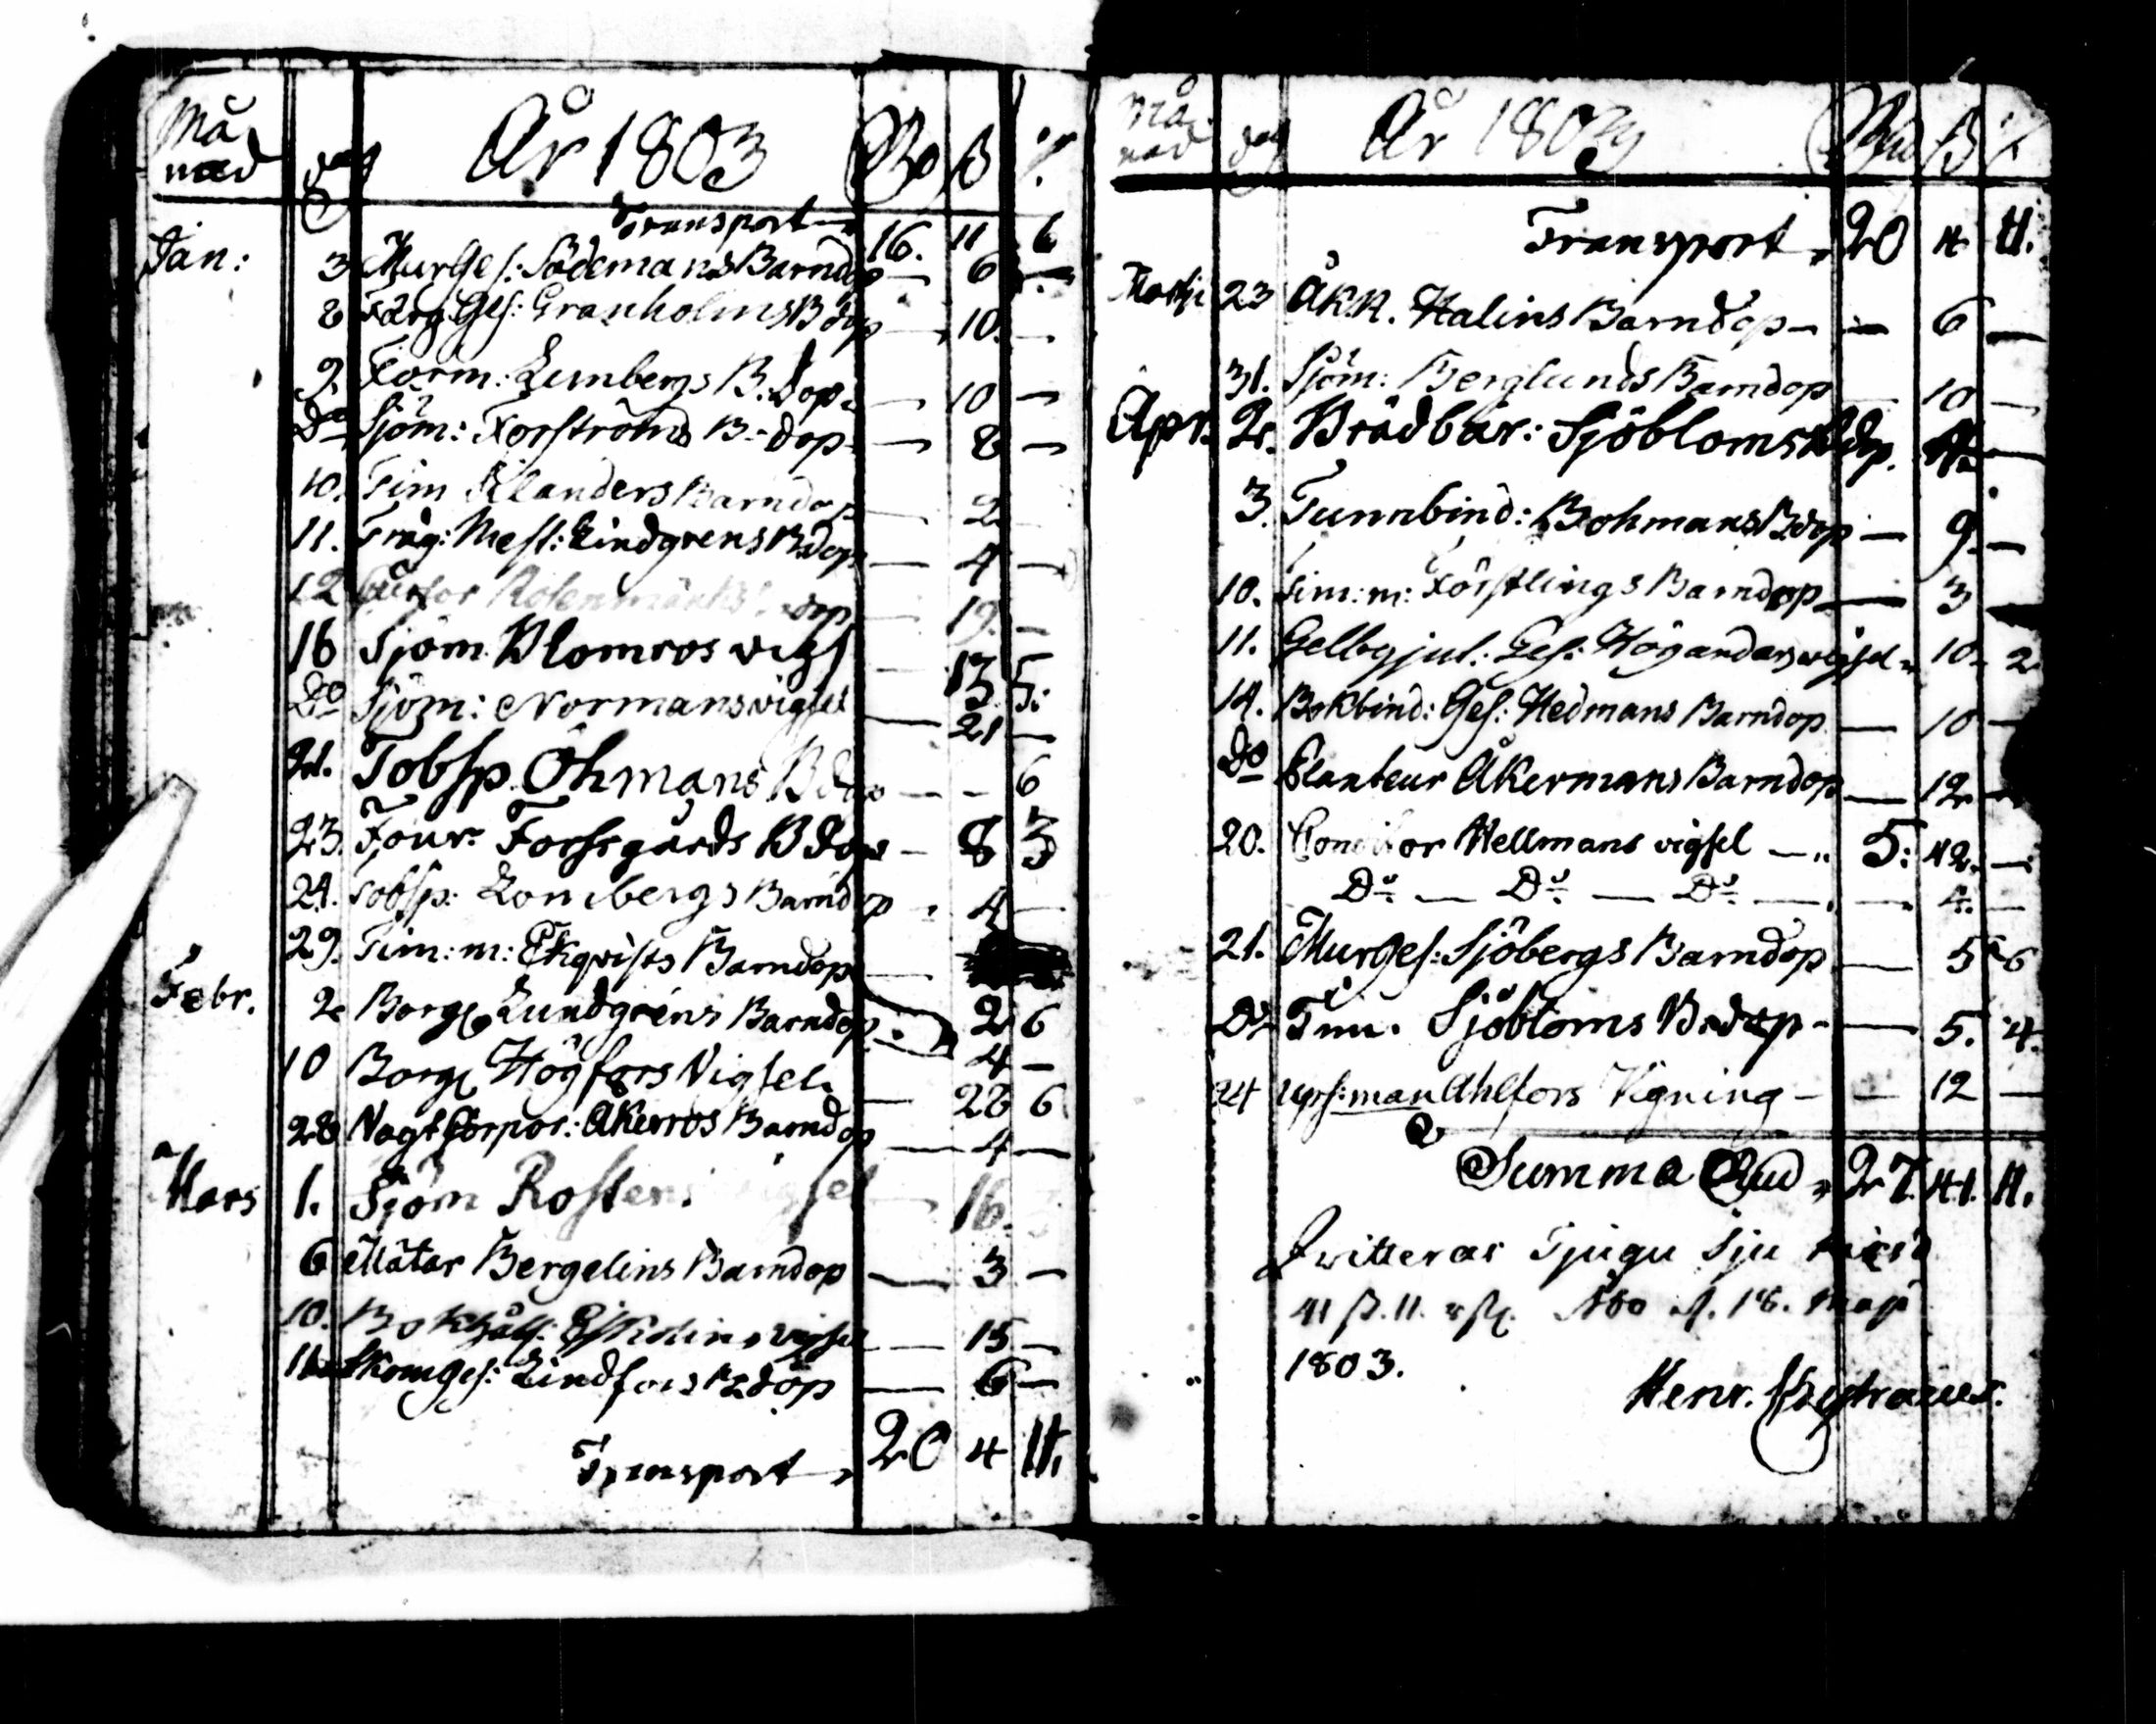 Må
nad dag År 1803 Rd ß
Transport 16. 11 6
Jan: 3 MurGes: Södemans Barndop — 6 —
8 Färg Ges: Granholms Bdop — 10. —
9. Form: Lembergs B. Dop — 10 —
Do Sjöm: Forströms B: dop — 8 —
10. Tim Elanders Barndop — 2
11. Träg: Mest: Lindgrens Bdop — 4 —
12 Rosenmarks dop — 19. —
16 Sjöm. Blomros vigs — 13 5.
Do Sjöm: Normans vigsel — 21 —
21. Tobsp. Öhmans Bdop — - 6
23. Four. Forssgårds Bdop — 8 3
24. Tobsp: Lonebergs Barndop 4 —
29. Tim: m: Ekqvists Barndop —
Febr. 2 Borg Lundgrens Barndop 2 6
4 —
10 Borg Högfors Vigsel — 28 6
28 Vagt Corpor: Åkerros Barndop — 4 —
Mars 1. Sjöm Rostens vigsel — 16.
6 Mätar Bergelins Barndop — 3 —
10. Bokhåll: vigsel — 15 —
11 Skomges: Lindfors Bdop — 6 —
Transport 20 4 11.
Må
nad dag År 1803 Rd ß
Transport 20 4 11.
Martii 23 Åk.K. Halins Barndop — — 6 —
31. Sjöm: Berglunds Barndop — 10 —
Apr. 2. Brädbär: Sjöbloms Bdp. 4 —
3. Tunnbind: Bohmans Bdop — 9. —
10. Tim: m: Förstlings Barndop — 3
11. Gelbgjut: Ges: Högandars vigsel 10. 2
14. Bokbind: Ges: Hedmans Barndop — 10 —
Do Planteur Åkermans Barndop — 12 —
20. Conditor Hellmans vigsel — 5: 42. —
Do — Do — Do — — 4. —
21. MurGes: Sjöbergs Barndop — 5 6
Do Tim. Sjöbloms Bndop — 5. 4.
24 Ups:man Ahlfors Vigning — — 12 —
Summa Rd 27. 41. 11.
Qvitteras Tjugu Sju
41 ß. 11. Åbo d. 18. Maji
1803.
Henr.